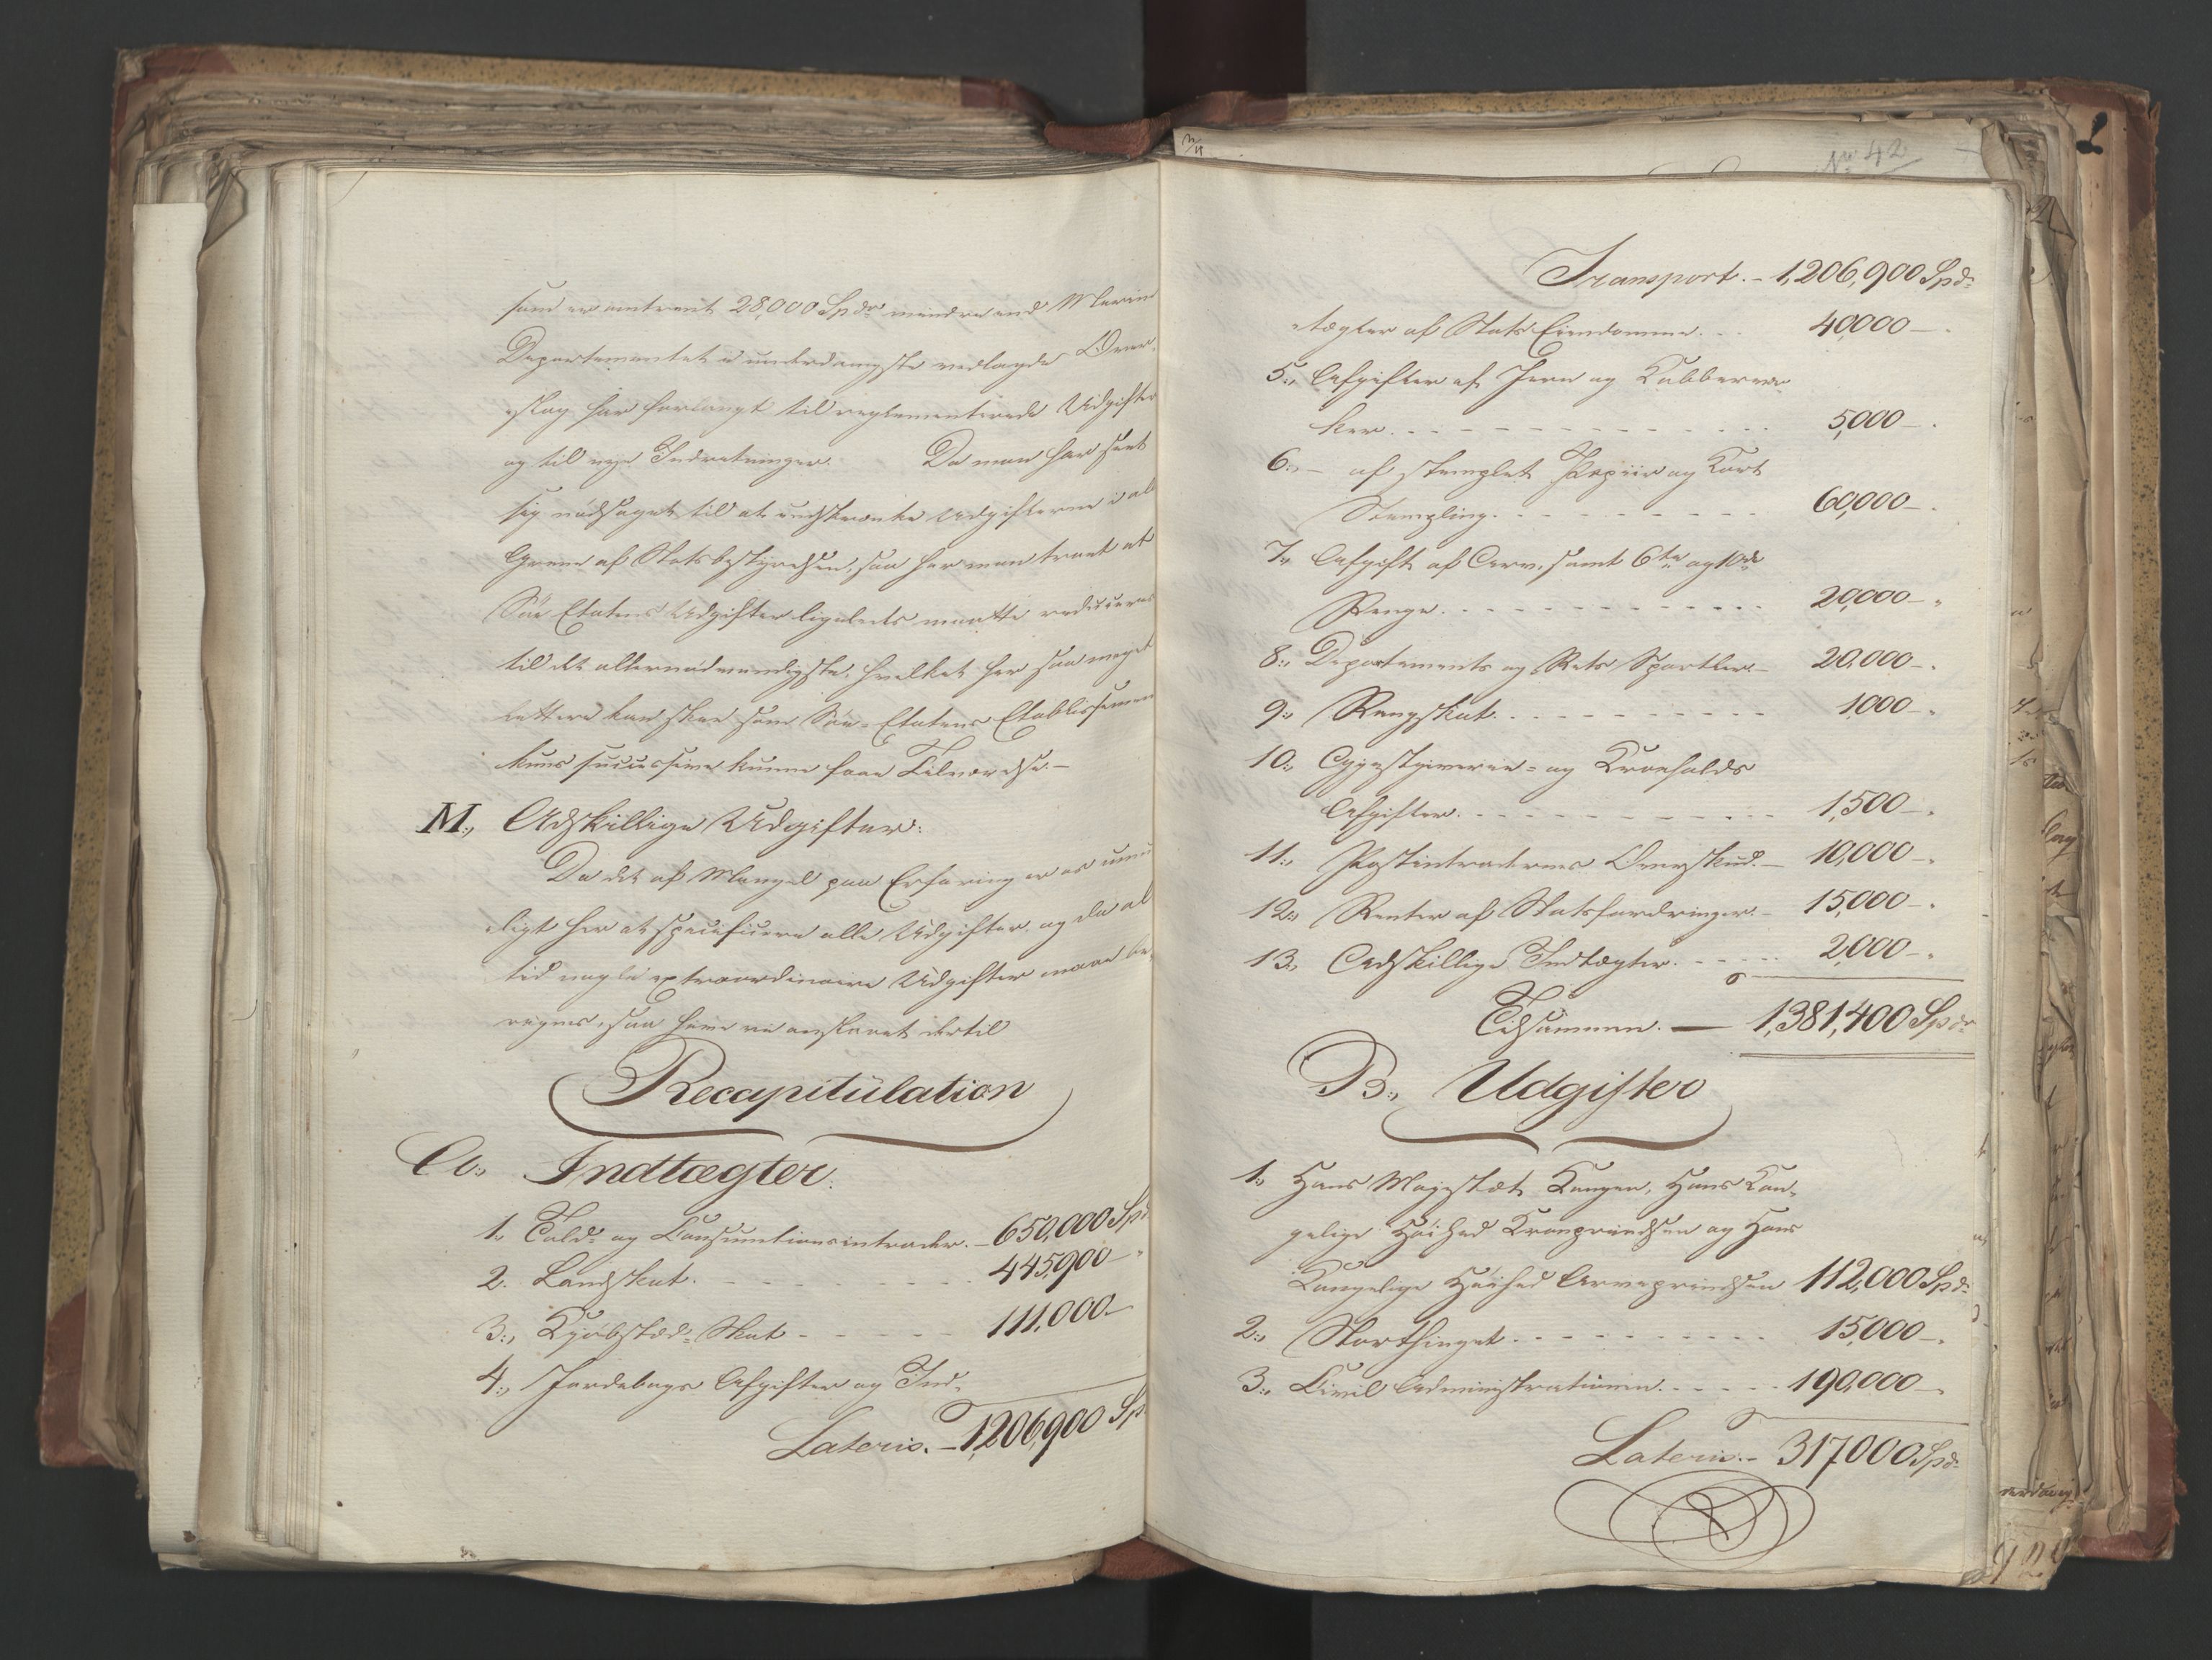 som er omtrent 28,000 Spdr mindre end Marine
Departementet i underdanigste vedlagde Over-
slag har forlangt til reglementerede Udgifter
og til nye Indretninger. Da man har seet
sig nødsaget til at indskrænke Udgifterne i alle
Grene af Statsbestyrelsen, saa har man troet at
Søe Etatens Udgifter ligeledes maatte reduceres
til det allernødvendigste, hvilket her saa meget
lettere kan skee som Søe-Etatens Etablissementer
kuns successive kunne faae Tilværelse.—
M., Adskillige Udgifter.
Da det af Mangel paa Erfaring er os umu-
ligt her at specificere alle Udgifter, og da al-
tid nogle extraordinaire Udgifter maae be-
regnes, saa have vi anslaaet dertil
Recapitulation
A., Indtægter.
1., Told- og Consumtionsintrader. — 650,000 Spd
2. Landskat. - - - 445,900 —
3., Kjøbstæd-Skat - - - 111,000 —
4., Jordebogs Afgifter og Ind-
Lateris. — 1,206,900 Sp
No 42
Transport. — 1,206,900 Spd:
tægter af Stats Eiendomme. - - 40,000 — .
5., Afgifter af Jern og Kobberver-
ker. - - - 5,000 — .
6., — af stemplet Papiir og Kort
Stempling. - - - 60,000 — .
7., Afgift af Arv, samt 6te og 10de
Penge. - - - 20,000 — .
8., Departements og Rets Sportler. — 20,000 — .
9., Rangskat. - - - 1,000 — .
10., Gjæstgiverie- og Kroeholds
Afgifter. - - - 1,500 — .
11., Postintradernes Overskud. — 10,000 — .
12., Renter af Statsfordringer. — 15,000 — .
13., Adskillige Indtægter. - - - 2,000 — .
Tilsammen. — 1,381,400 Spdr
B., Udgifter
1., Hans Majestæt Kongen, Hans Kon-
gelige Høihed Kronprindsen og Hans
Kongelige Høihed Arveprindsen 112,000 Spd:
2., Storthinget. - - - 15,000 — .
3., Civil Administrationen. - - - 190,000 — .
Lateris. — 317,000 Spd: